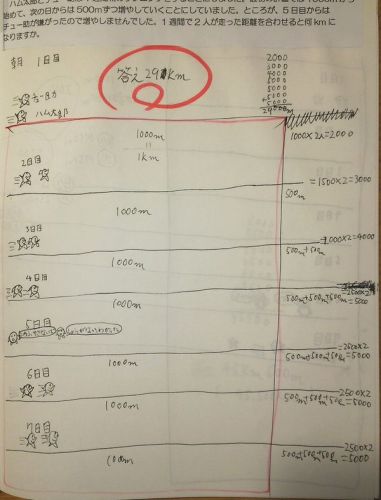 始めて、次の日からは500mずつ増やしていくことにしていました。ところが、5日目からは
チュー助が嫌がったので増やしませんでした。1週間で2人が走った距離を合わせると何kmに
なりますか。
朝 1日目
答え 29km
2000
3000
4000
5000
5000
5000
+5000
29000m
チュー助
ハム太郎
1000m
1000×2人=2000
||
1km
2日目
=1500×2=3000
500m
1000m
3日目
=2000×2=4000
500m+500m
1000m
4日目
500m+500m+500m
=5000
1000m
5日目
=2500×2
500m+500m+500m=5000
1000m
6日目
2500×2
500m+500m+500m=5000
1000m
7日目
2500×2
500m+500m+500m=5000
1000m